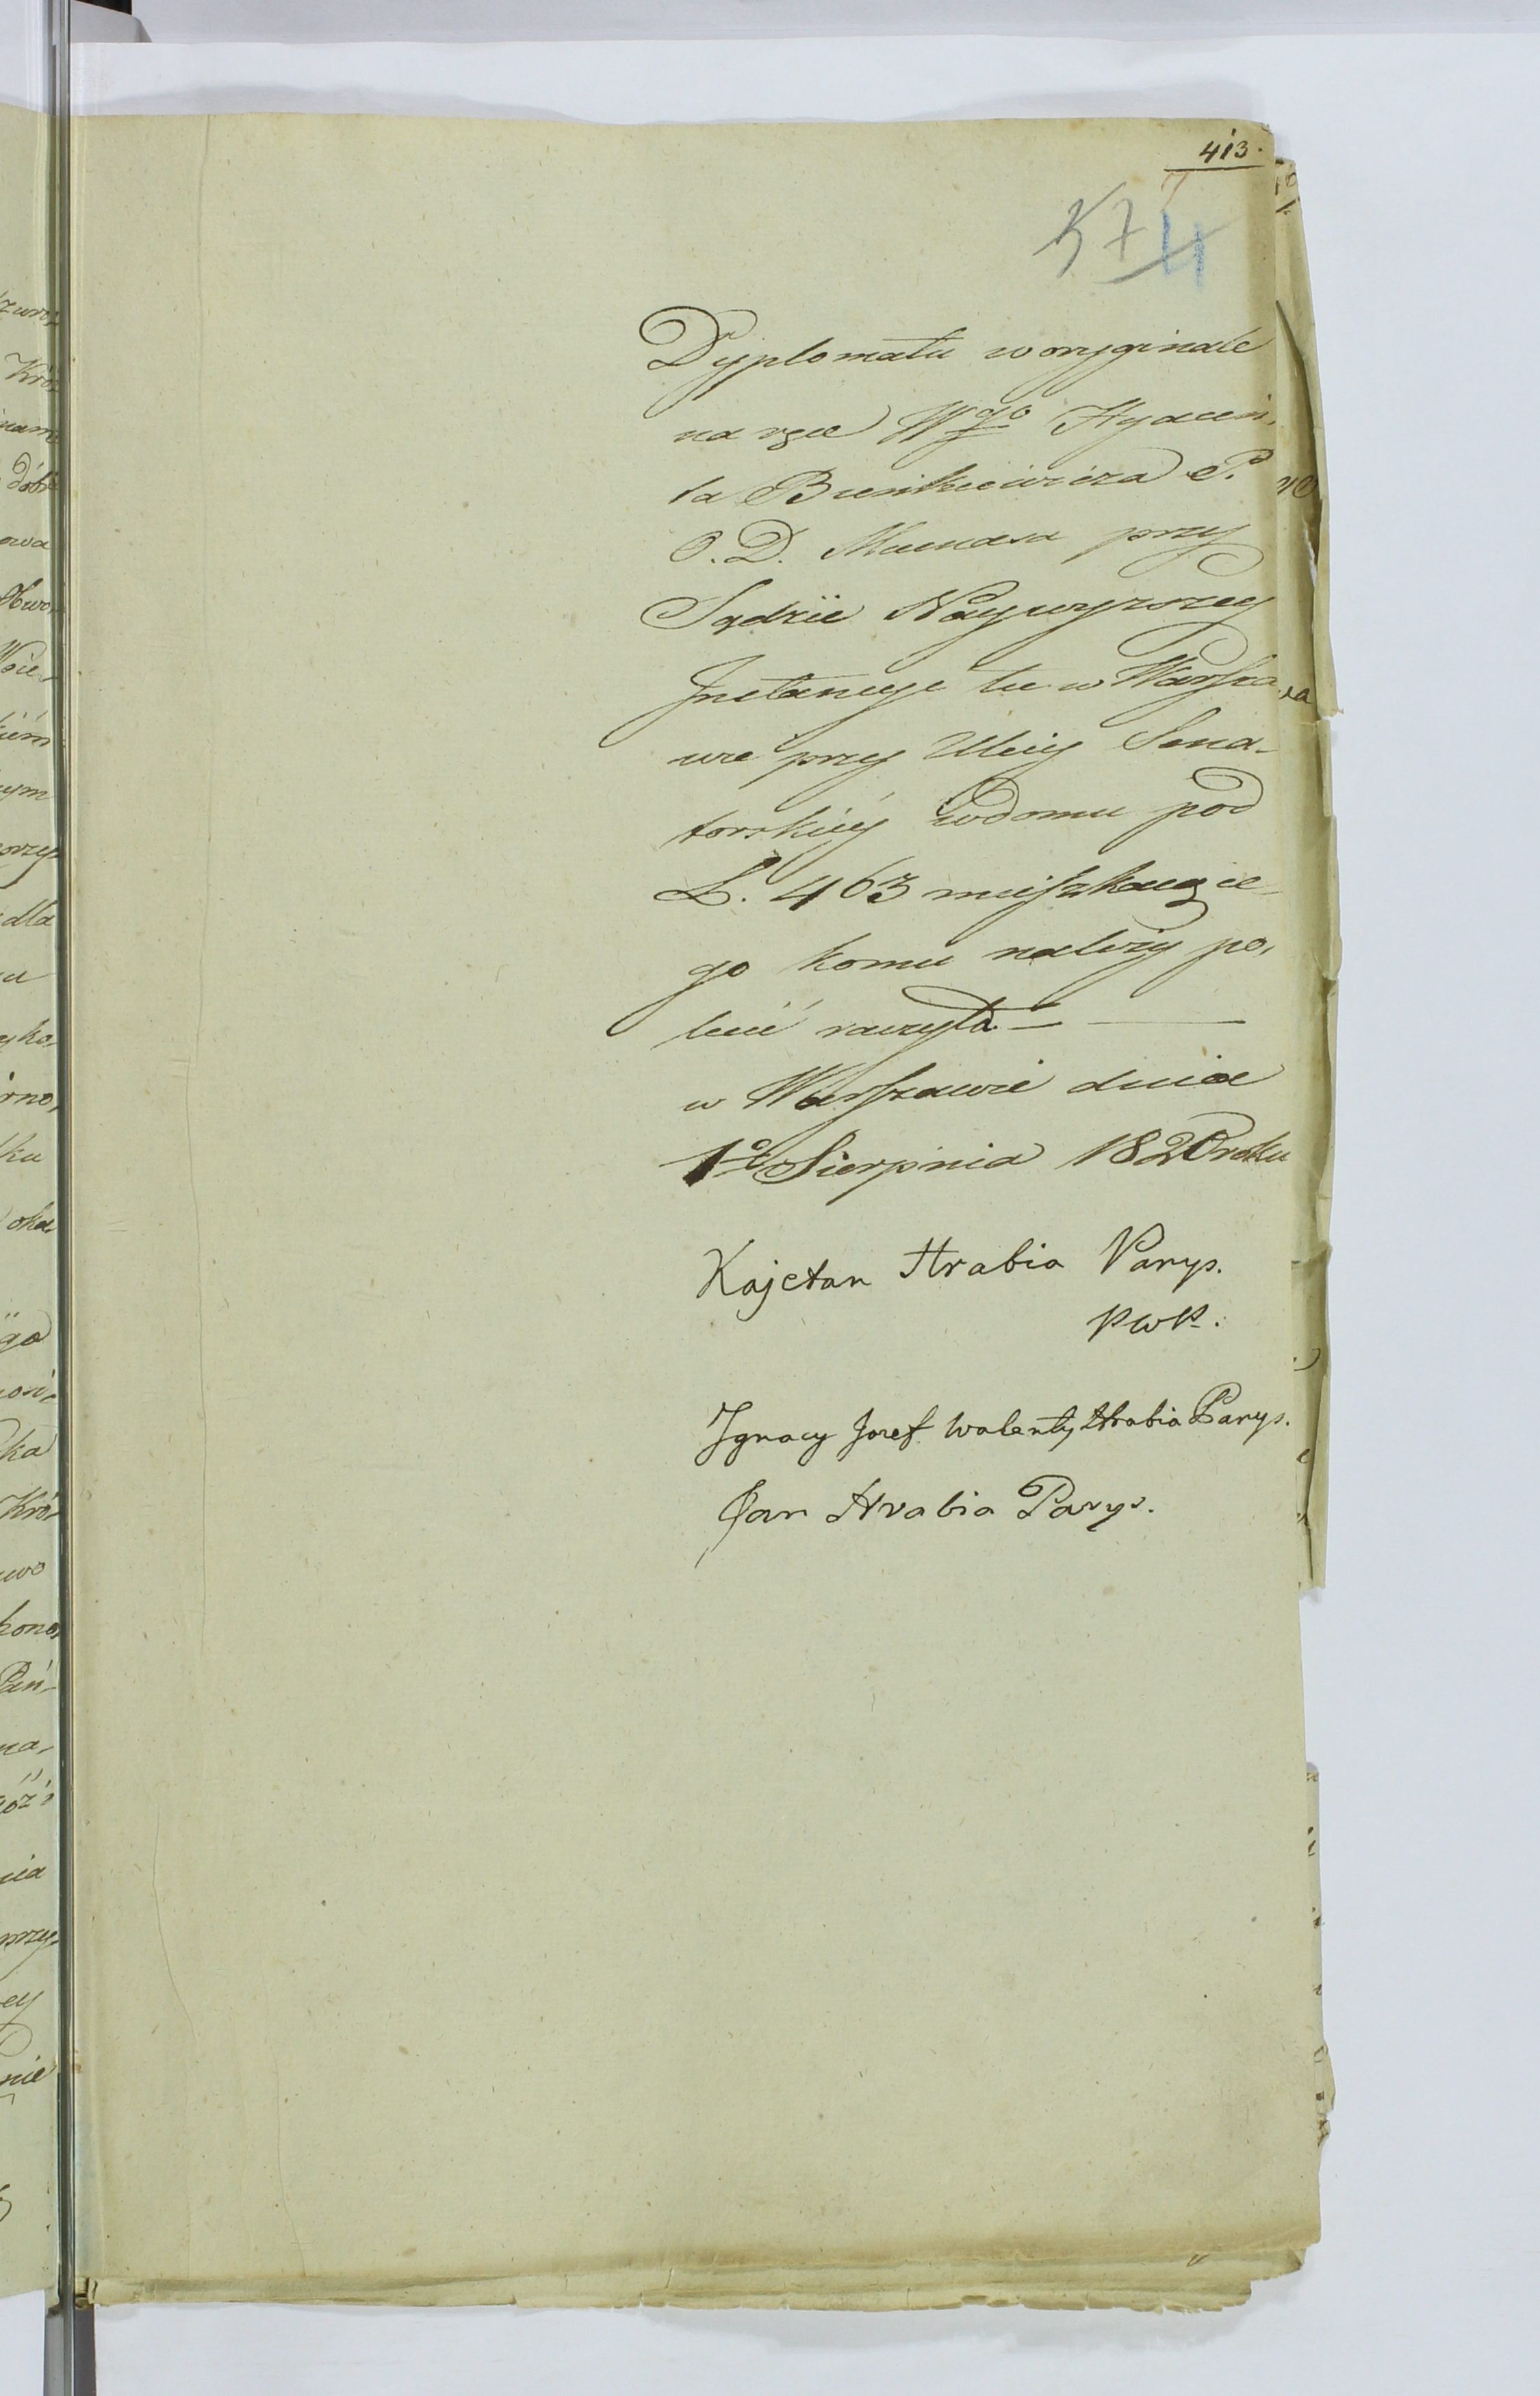 413.
57
7
4
Dyplomatu w oryginale
na ręce Wgo Hyacen,
ta Bienkiewicza P.
O. D. Mecenasa przy
Sądzie Naywyzszey
Instancyi tu w Warsza
wie przy Ulicy Sena-
torskiéy w domu pod
L. 463 mieszkaące
go komu należy po,
lecić raczyła —
w Warszawie dnia
1o Sierpnia 1820 roku
Kajetan Hrabia Parys.
Ignacy Jozef Walenty Hrabia Parys.
Jan Hrabia Parys.